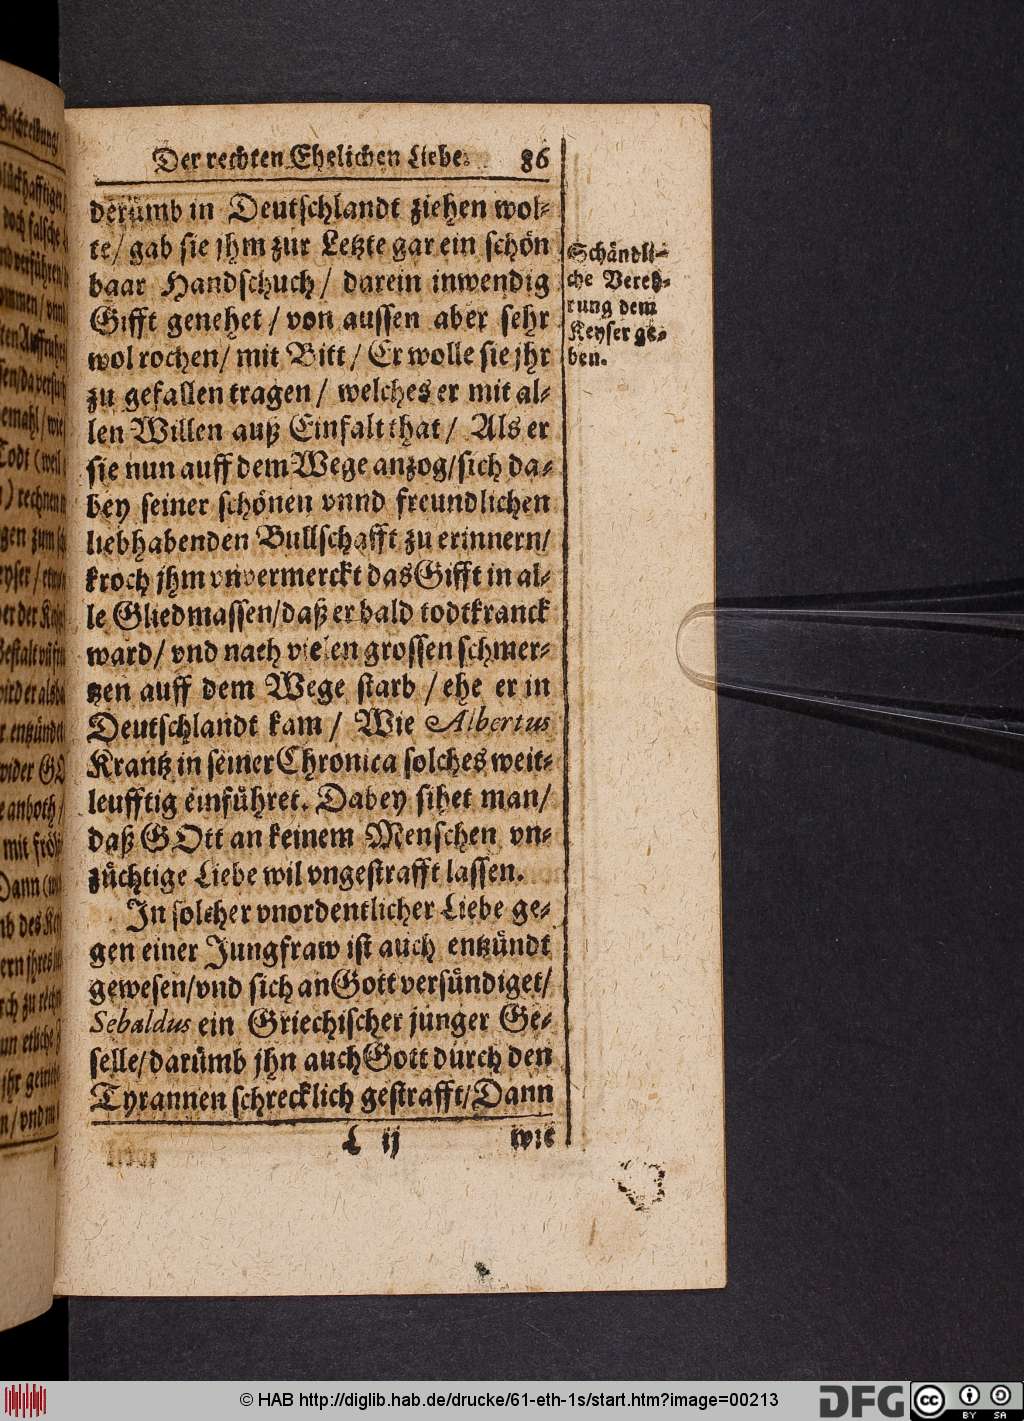 Der rechten Ehelichen Liebe. 86
derümb in Deutschlandt ziehen wol-
te/ gab sie jhm zur Letzte gar ein schön
baar Handschuch/ darein inwendig
Gifft genehet/ von aussen aber sehr
wol rochen/ mit Bitt/ Er wolle sie jhr
zu gefallen tragen/ welches er mit al-
len Willen auß Einfalt that/ Als er
sie nun auff dem Wege anzog/ sich da-
bey seiner schönen vnnd freundlichen
liebhabenden Bullschafft zu erinnern/
kroch jhm vnvermerckt das Gifft in al-
le Gliedmassen/ daß er bald todtkranck
ward/ vnd nach vielen grossen schmer-
tzen auff dem Wege starb/ ehe er in
Deutschlandt kam/ Wie Albertus
Krantz in seiner Chronica solches weit-
leufftig einführet. Dabey sihet man/
daß GOtt an keinem Menschen vn-
züchtige Liebe wil vngestrafft lassen.
In solcher vnordentlicher Liebe ge-
gen einer Jungfraw ist auch entzündt
gewesen/ vnd sich an Gott versündiget/
Sebaldus ein Griechischer junger Ge-
selle/ darümb jhn auch Gott durch den
Tyrannen schrecklich gestrafft/ Dann
L ij wie
Schändli-
che Vereh-
rung dem
Keyser ge-
ben.
© HAB http://diglib.hab.de/drucke/61-eth-1s/start.htm?image=00213
DFG
cc
BY SA